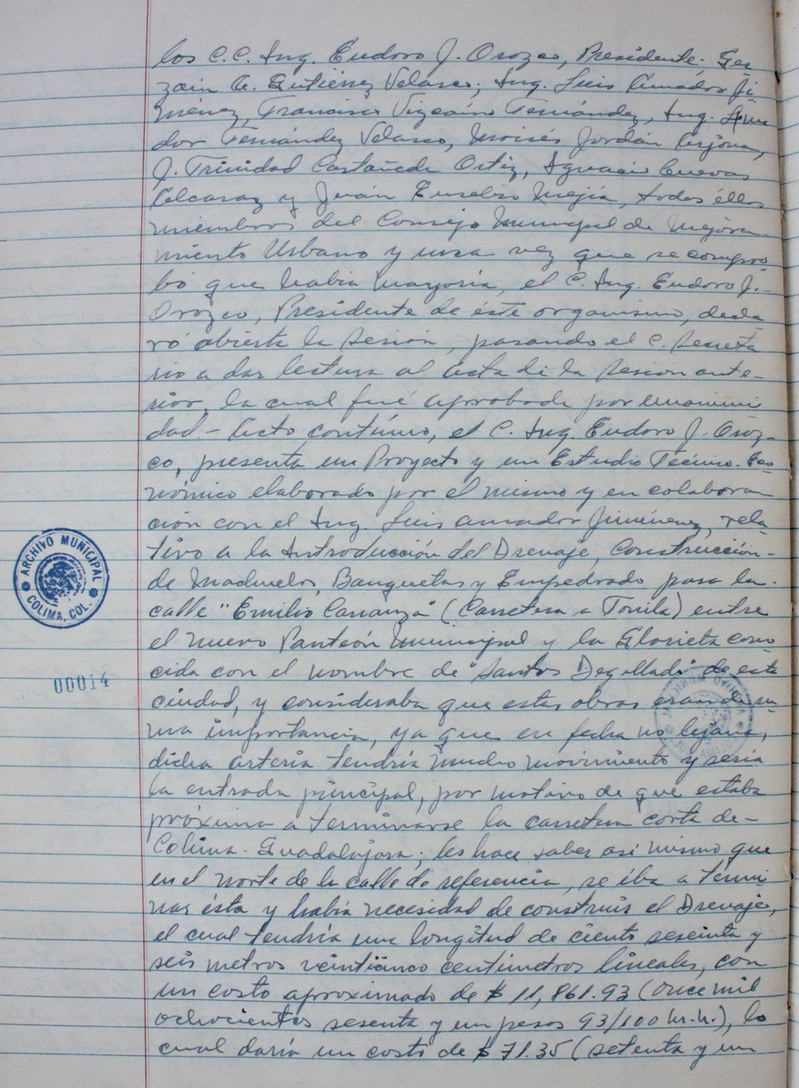 los C.C. Ing. Eudoro J. Orozco, Presidente. Ger
zain G. Gutiérrez Velasco, Ing. Luis Amador Ji
ménez, Francisco Vizcaíno Fernández, Ing. Ama
dor Fernández Velasco, Moisés Jordán
J. Trinidad Castañeda Ortiz, Ignacio Cuevas
Alcaraz y Juán Eusebio Mejía, todos éllos
miembros del Consejo Municipal de Mejora-
miento Urbano y una vez que se compro
bó que había mayoría, el C. Ing. Eudoro J.
Orozco, Presidente de éste organismo, decla
ró abierta la sesión, pasando el C. Secreta
rio a dar lectura al Acta de la Sesión ante-
rior, la cual fué aprobada por unanimi
dad.- Acto contínuo, el C. Ing. Eudoro J. Oroz-
co, presenta un Proyecto y un Estudio Técnico-Eco
nómico elaborado por el mismo y en colabora
ción con el Ing. Luis Amador Jiménez, rela-
tivo a la Introducción del Drenaje, Construcción-
de Machuelos, Banquetas y Empedrado para la-
calle "Emilio Carranza" (Carretera a Tonila) entre
el nuevo Panteón Municipal y la Glorieta cono
cida con el nombre de "Santos Degollado" de esta
ciudad, y consideraba que estas obras eran de su
ma importancia, ya que en fecha no lejana,
dicha arteria tendría mucho movimiento y sería
la entrada principal, por motivo de que estaba
próxima a terminarse la carretera corta de-
Colima-Guadalajara; les hace saber así mismo que
en el norte de la calle de referencia, se iba a termi
nar ésta y había necesidad de construir el Drenaje,
el cual tendría una longitud de ciento seseinta y
seis metros veinticinco centímetros lineales, con
un costo aproximado de $ 11,861.93 (once mil
ochocientos sesenta y un pesos 93/100 m.n.), lo
cual daría un costo de $ 71.35 (setenta y un
ARCHIVO MUNICIPAL
COLIMA, COL.
00014